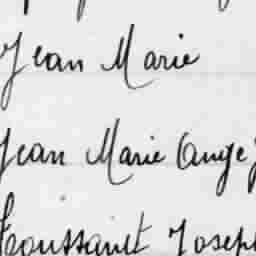 Jean Marie
Jean Marie Cange
Toussaint Joseph